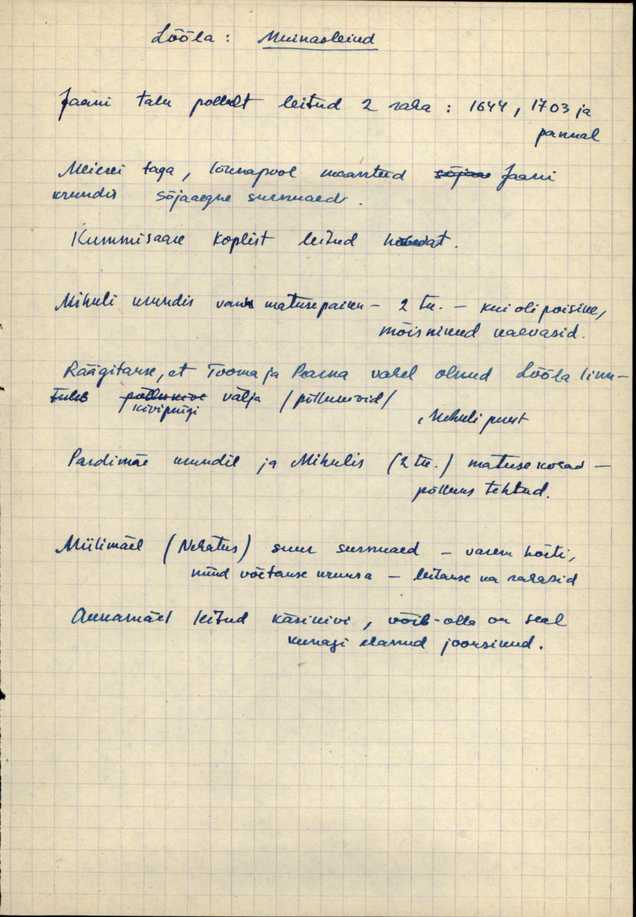 Lööla: Muinasleiud
Jaani talu põllult leitud 2 raha: 1644, 1703 ja
pannal
Meierei taga, lõunapool maanteed sõjaae Jaani
krundis sõjaaegne surnuaed.
Kummisaare koplist leitud hõbedat.
Mihuli krundis vana matusepaik – 2 tk. – kui oli poisike,
mõisnikud kaevasid.
Räägitakse, et Tooma ja Paarna vahel olnud Lööla linn –
tuleb põllukive välja /põllukivid/
kivipuigi
, Mihuli puust
Pardimäe krundil ja Mihulis (2 tk.) matusekohad –
põlluks tehtud.
Miilimäel (Nehatus) suur surnuaed – varem hoiti,
nüüd võetakse kruusa – leitakse ka rahasid
Annamäel leitud käsikivi, võib-olla on seal
kunagi elanud joonsikud.